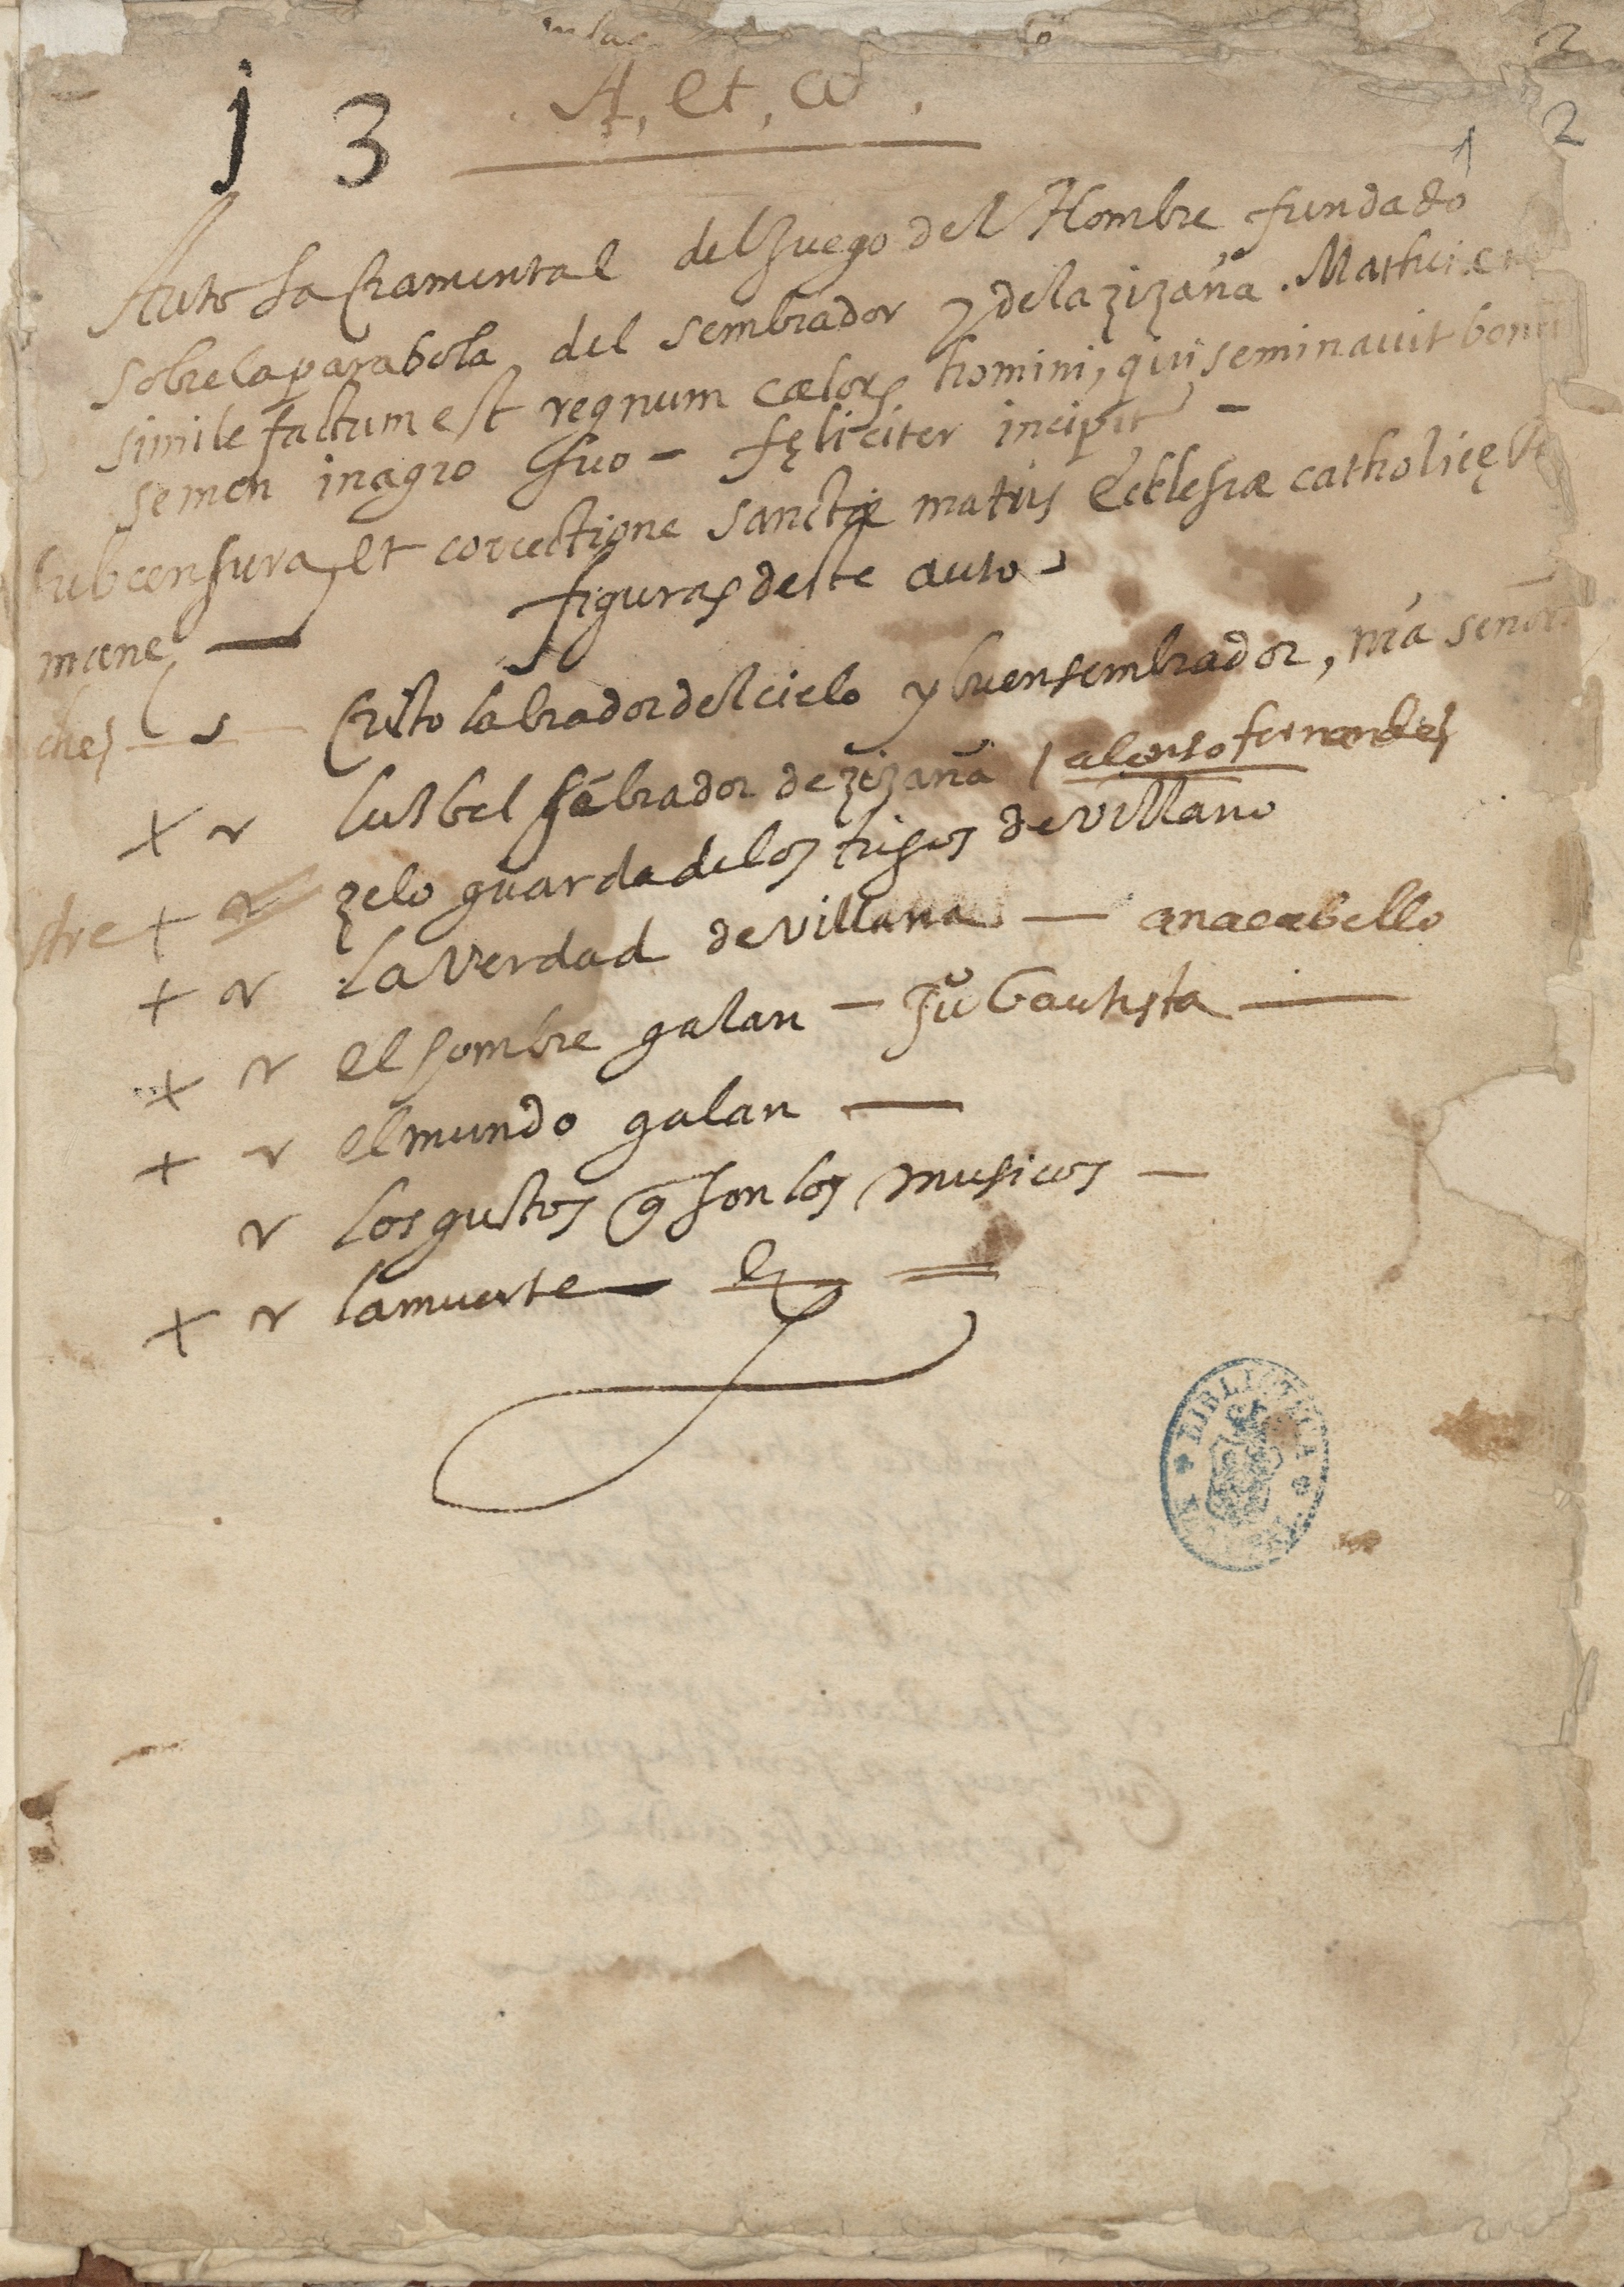 2
j 3 . A, et, ω .
1 2
Auto Sacramental del Juego del Hombre fundado
sobre la parabola del sembrador y de la zizaña . Mathei.
simile factum est regnum cælor homini, qui seminauit bon
semen in agro suo - fęliciter incipit -
sub censura, et correctione sanctæ matris Ecclesiæ catholicę
mane
figuras deste auto
ches Cristo labrador del cielo y buen sembrador, nra señor
+ v Lusbel sēbrador de zizaña / alonso fernandes
stre + v zelo guarda de los trigos de villano
+ v La Verdad de villana — ana cabello
+ v el hombre galan - Ju bautista —
+ v el mundo galan —
v los gustos q son los musicos —
+ v la muerte
BIBLIOTECA